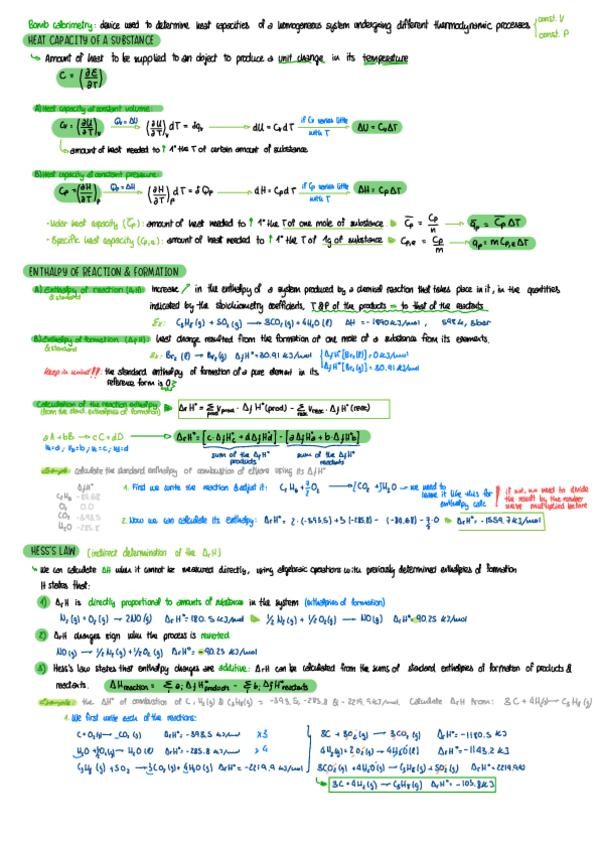 Bomb calorimetry: device used to determine heat capacities of a homogeneous system undergoing different thermodynamic processes { const. V
const. P
HEAT CAPACITY OF A SUBSTANCE
↳ Amount of heat to be supplied to an object to produce a unit change in its temperature
C = (∂E/∂T)
A) Heat capacity at constant volume:
Cv = (∂U/∂T)v  Qv = ΔU → (∂U/∂T)v dT = δqv → dU = Cv dT  if Cv varies little with T → ΔU = CvΔT
↳ amount of heat needed to ↑ 1° the T of certain amount of substance
B) Heat capacity at constant pressure:
Cp = (∂H/∂T)p  Qp = ΔH → (∂H/∂T)p dT = δQp → dH = Cp dT  if Cp varies little with T → ΔH = CpΔT
- Molar heat capacity (C̅p): amount of heat needed to ↑ 1° the T of one mole of substance ▶ C̅p = Cp/n → qp = C̅p ΔT
- Specific heat capacity (Cp,e): amount of heat needed to ↑ 1° the T of 1g of substance ▶ Cp,e = Cp/m → qp = m Cp,e ΔT
ENTHALPY OF REACTION & FORMATION
A) Enthalpy of reaction (ΔrH): Increase / in the enthalpy of a system produced by a chemical reaction that takes place in it, in the quantities
& standard
indicated by the stoichiometry coefficients, T & P of the products = to that of the reactants
Ex: C3H8 (g) + 5O2 (g) → 3CO2 (g) + 4H2O (l)
B) Enthalpy of formation (ΔfH): heat change resulted from the formation of one mole of a substance from its elements.
& standard
Ex: Br2 (l) → Br2 (g) ΔfH° = 30.91 kJ/mol { ΔfH° [Br2 (l)] = 0 kJ/mol
ΔfH° [Br2 (g)] = 30.91 kJ/mol
Keep in mind!!: the standard enthalpy of formation of a pure element in its
reference form is 0
Calculation of the reaction enthalpy ▶ ΔrH° = Σprod νprod · ΔfH° (prod) - Σreac νreac · ΔfH° (reac)
(from the stand. enthalpies of formation)
aA + bB → cC + dD → ΔrH° = [c·ΔfH°c + dΔfH°d] - [aΔfH°a + b·ΔfH°b]
νa=a; νb=b; νc=c; νd=d
sum of the ΔfH° products   sum of the ΔfH° reactants
Example: calculate the standard enthalpy of combustion of ethane using its ΔfH°
ΔfH°
C2H6 -84.68
O2 0.0
CO2 -393.5
H2O -285.8
1. First we write the reaction & adjust it: C2H6 + 7/2 O2 → 2CO2 + 3H2O → we need to leave it like this for enthalpy calc
if not, we need to divide the result by the number we've multiplied before
2. Now we can calculate its enthalpy: ΔrH° = 2·(-393.5) + 3(-285.8) - (-84.68) - 7/2·0 ▶ ΔrH° = -1559.7 kJ/mol
HESS'S LAW (indirect determination of the ΔrH)
↳ We can calculate ΔH when it cannot be measured directly, using algebraic operations with previously determined enthalpies of formation
It states that:
1) ΔrH is directly proportional to amounts of substances in the system (enthalpies of formation)
N2 (g) + O2 (g) → 2NO (g) ΔrH° = 180.5 kJ/mol ▶ 1/2 N2 (g) + 1/2 O2 (g) → NO (g) ΔrH° = 90.25 kJ/mol
2) ΔrH changes sign when the process is reverted
NO (g) → 1/2 N2 (g) + 1/2 O2 (g) ΔrH° = -90.25 kJ/mol
3) Hess's law states that enthalpy changes are additive: ΔrH can be calculated from the sums of standard enthalpies of formation of products &
reactants. ΔH reaction = Σ ai ΔfH° products - Σ bi ΔfH° reactants
Example: the ΔH° of combustion of C, H2 (g) & C3H8 (g) = -393.5, -285.8 & -2219.9 kJ/mol. Calculate ΔrH from: 3C + 4H2 (g) → C3H8 (g)
1. We first write each of the reactions:
C + O2 (g) → CO2 (g) ΔrH° = -393.5 kJ/mol x3
3C + 3O2 (g) → 3CO2 (g) ΔrH° = -1180.5 kJ
H2O ΔrH° = -285.8 kJ/mol x4
4H2 (g) + 2O2 (g) → 4H2O (l) ΔrH° = -1143.2 kJ
C3H8 (g) + 5O2 → 3CO2 (g) + 4H2O (g) ΔrH° = -2219.9 kJ/mol
3CO2 (g) + 4H2O (g) → C3H8 (g) + 5O2 (g)
↳ 3C + 4H2 (g) → C3H8 (g) ΔrH° = -103.8 kJ